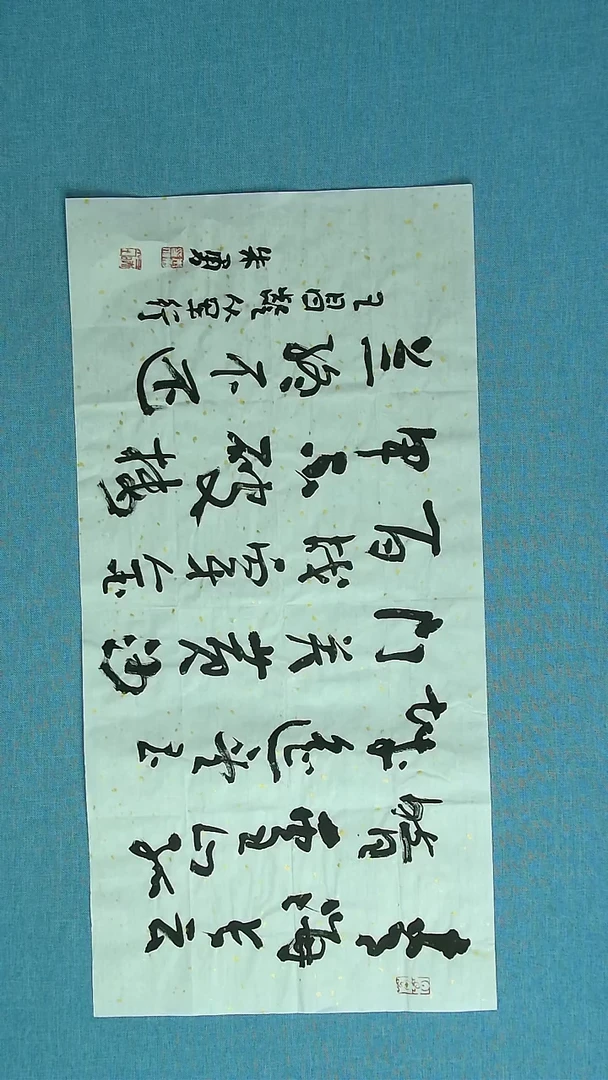 青海长云
暗雪山孤
城遥望玉
门关黄沙
百战穿金
甲不破楼
兰终不还
王昌龄从军行
朱勇